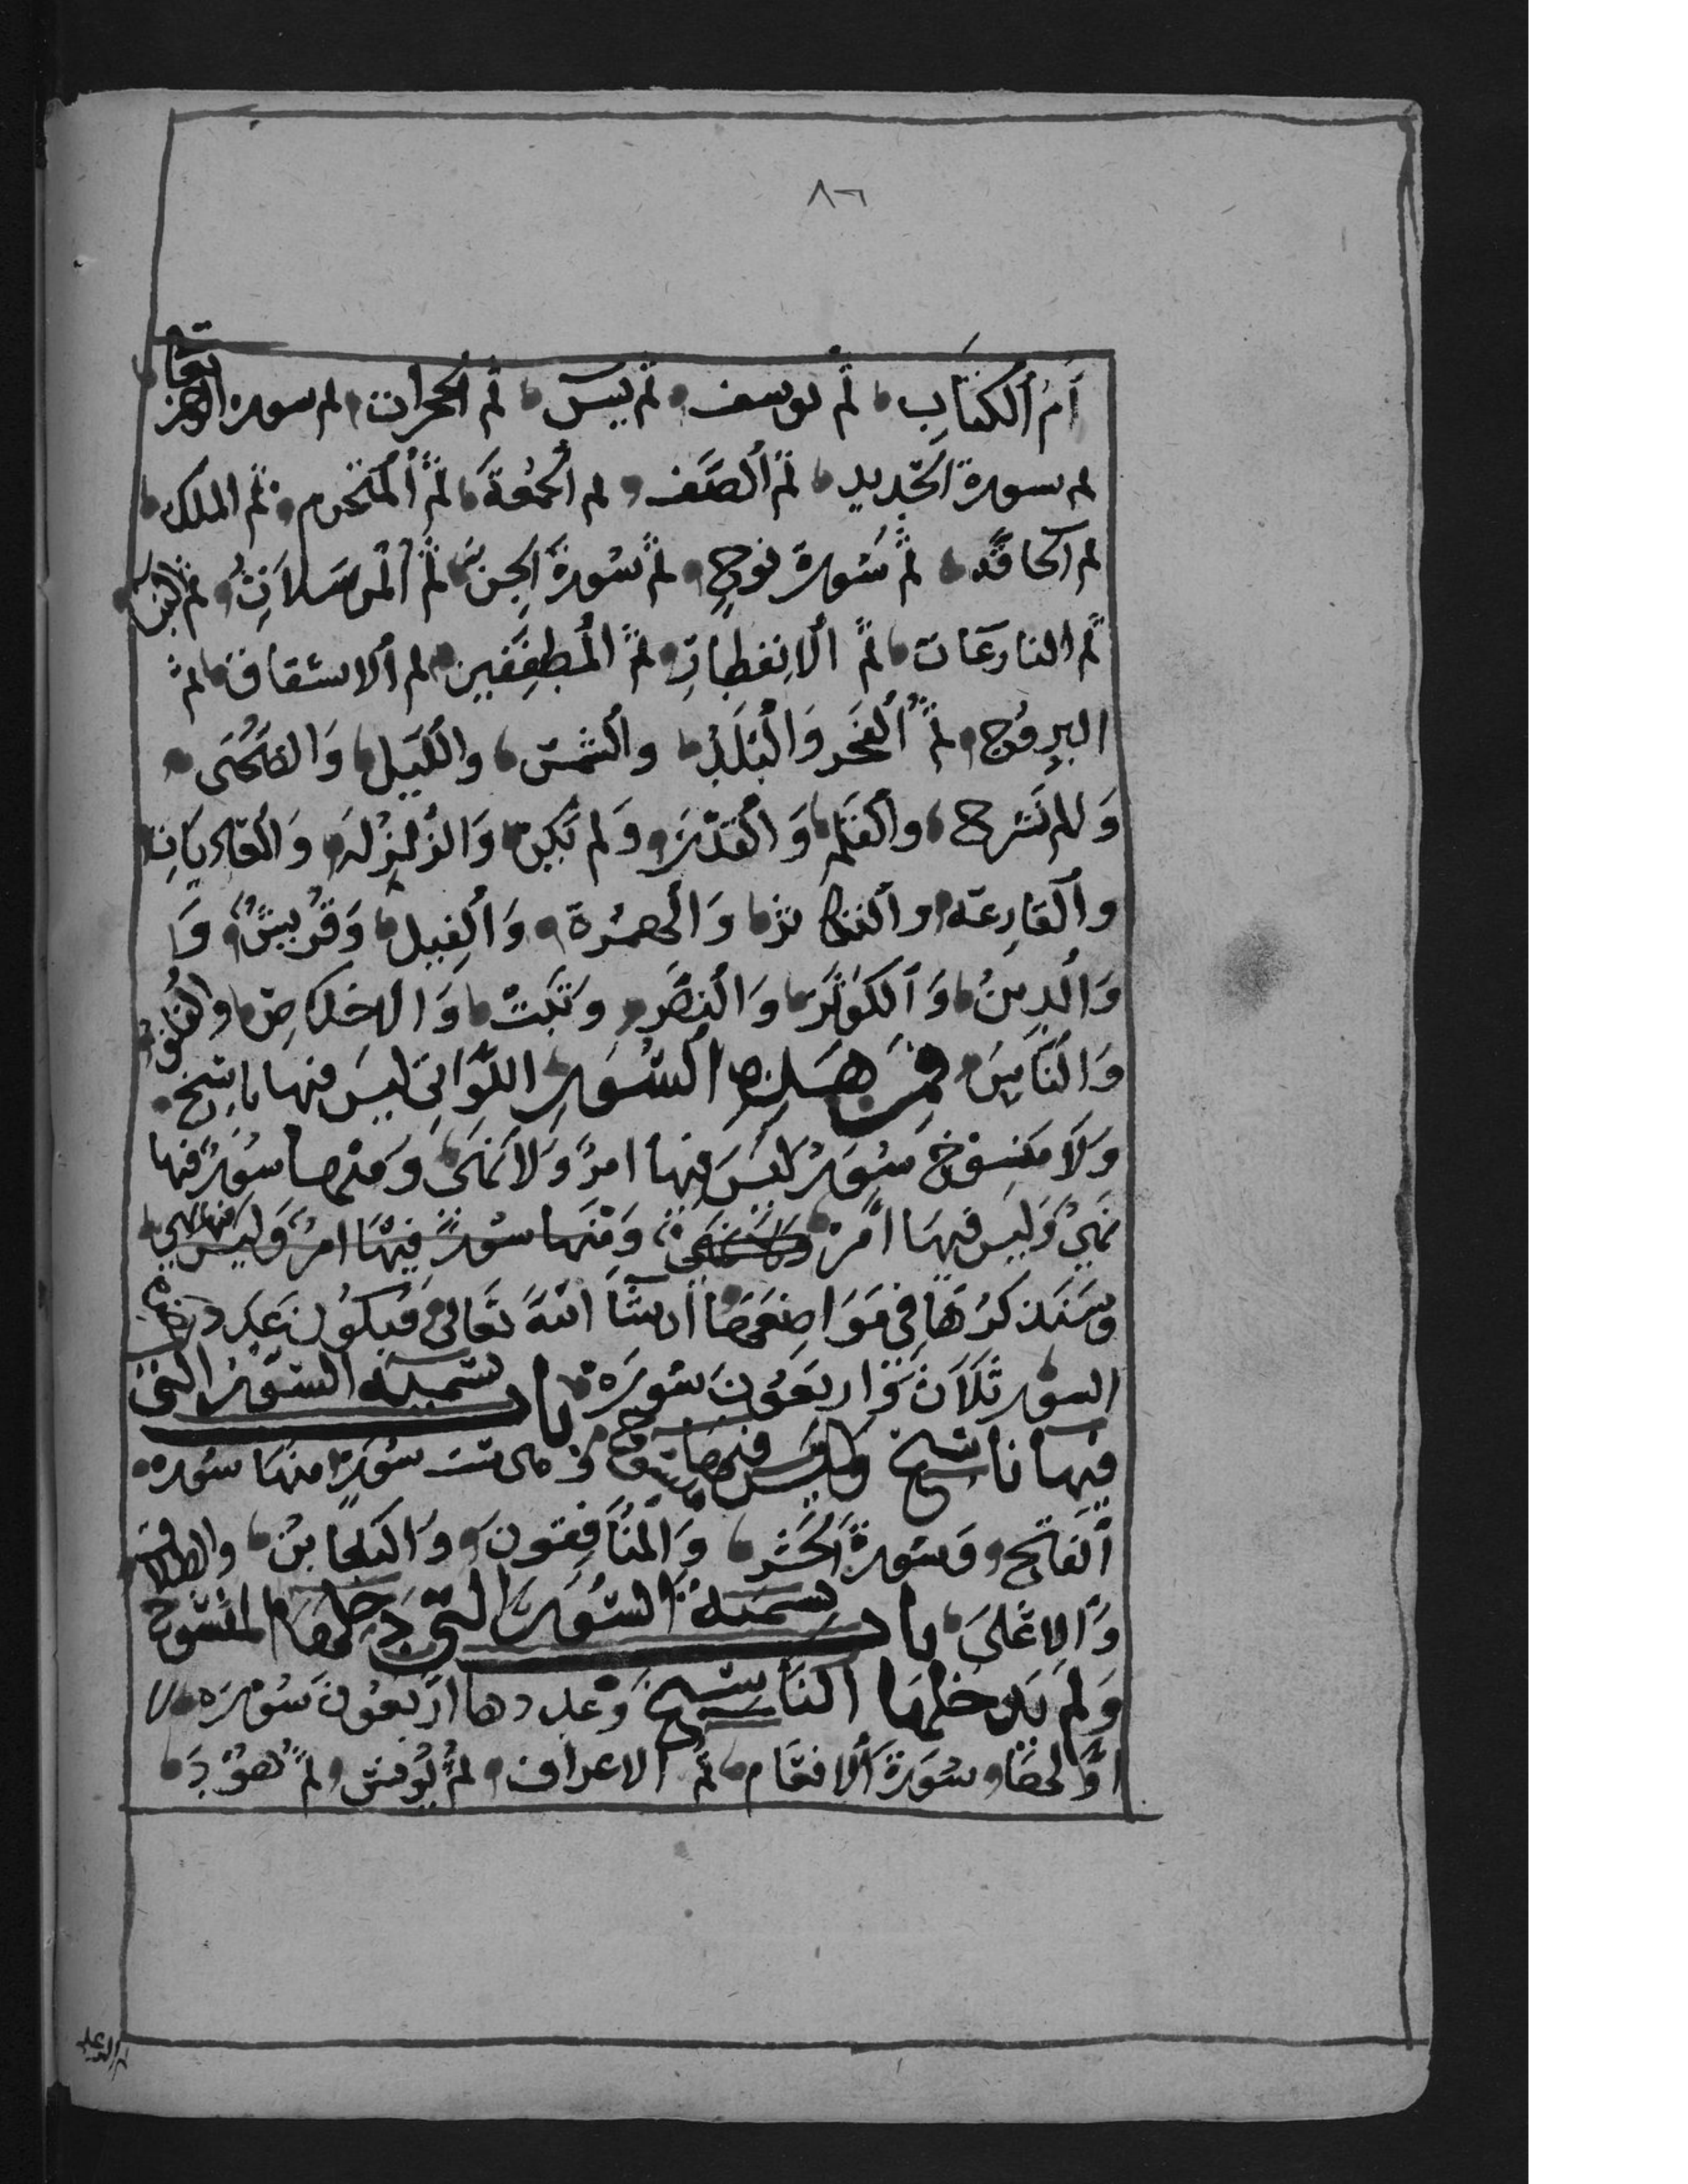 ٨٦
أَمُ ٱلكتَابِ ثُمَّ يوسف ثم يٰسٓ ثم ٱلحجرات ثم سوره الرحمن
ثم سورة ٱلحَدِيدِ ثمَّ ٱلصَّف ثم ٱلجُمُعَةَ ثمَّ ٱلْمتَحَرم ثم الملك
ثم ٱلحاقه ثمَّ سُورة نوحٍ ثم سُورةَ ٱلجِنّ ثمَّ ٱلْمُرسَلاَتِ ثم النبأ
ثم النازعَات ثمَّ ٱلانِفطِارِ ثمَّ ٱلْمُطفِفَفِين ثم ٱلانشقاق ثم
البروُج ثمَّ ٱلْفَجر وَٱلْبَلَدِ وٱلشمس وٱللَّيَلِ وَالضُّحَى
وَٱلم نَشرح وٱلقَلَمِ وَٱلْقَدْرَ وَلم يَكِنْ وَالزَّلِزلَه وَٱلْعَادِيَاتِ
وٱلقَارِعَه وٱلتكاثر وَٱلهمزة وَٱلْفِيلِ وَقُرَيشٍ وَا
وَٱلْدِينُ وَٱلكَوثَر وَٱلنصَّر وَتَبَتْ وَالاخلاصِ وٱلفلق
وَٱلْنَّاسِ فهَذِهِ ٱلسُّوَر اللَّوَاتِى ليسَ فيها نَاسِخ
وَلاَ مَنسوُخ سُوَرٌ ليَسَ فِيها امرٌ وَلاَ نَهَىٌ وَمنها سُوَرٌ فيها
نَهيٌ وَليسَ فيهَا امَّرٌ وَمِنَها سُورٌ فِيهَا امرٌ وَليسَ فيها نهي
وسَنَذكرُهَا فِى مَوَاضِعَهَا ان شَآ اللّهَ تَعَالى فَيكوُن عَدد هذه
السور ثَلاَثَ وَّاربَعوُنَ سُورَة باب تسميه السوَر التى
فيها ناسخ وَليسَ فيها منسوخ وَهى ست سُوَرٌ منهَا سُورة
ٱلفَتح وَسُورةُ ٱلحَشر وَٱلْمنَافِقوُنَ وَٱلتَغَابن وٱلطلاق
وَٱلاعْلىَ باب تسميَةُ ٱلسُوَرِ التى دَخلهَا المنسوُخ
وَلَم يَدخلهَا ٱلنَاسخ وَعددها اَرْبَعوُنَ سُورَة
اوَّلهَا سُورَة ٱلانعَام ثم الاعراف ثمَّ يُونس ثمَّ هُوْدَ
ثم الرعد